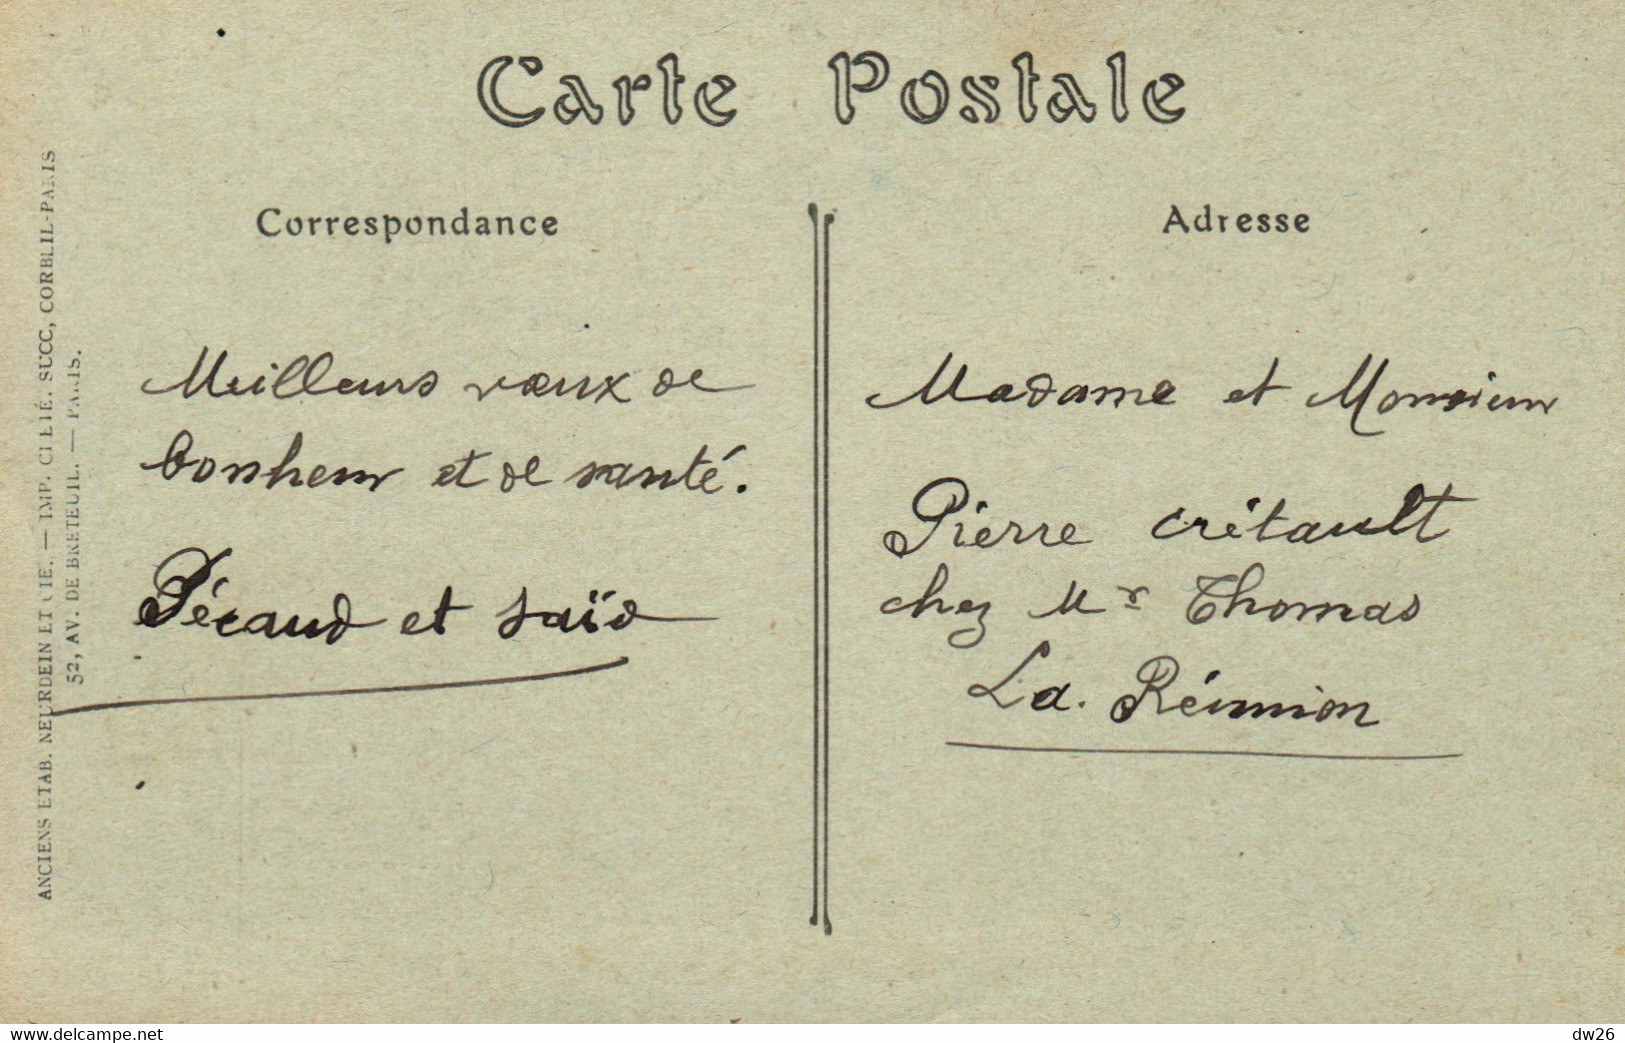 Carte Postale
Correspondance
Meilleurs vœux de
bonheur et de santé.
Pécaud et Saïd
Adresse
Madame et Monsieur
Pierre Crétault
chez Mr Thomas
La. Réunion
ANCIENS ETAB. NEURDEIN ET CIE. — IMP. CRÉTÉ. SUCC, CORBEIL-PARIS
52, AV. DE BRETEUIL. — PARIS.
www.delcampe.net
dw26